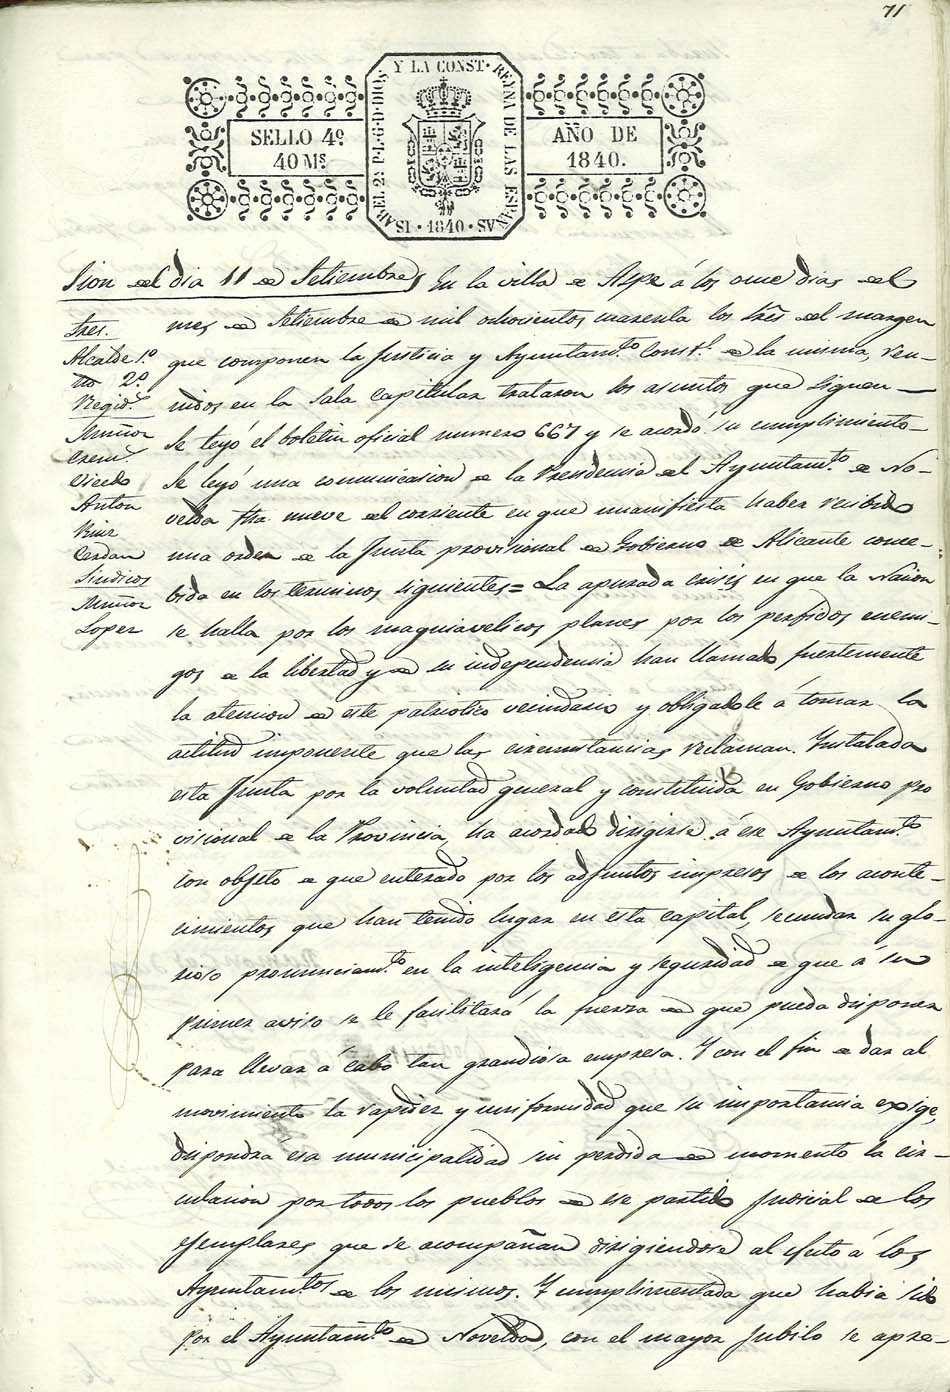 71
SELLO 4º
40 Mˢ
ISABEL 2ª P. L. G. D. DIOS Y LA CONST. REYNA DE LAS ESPAÑAS
· 1840 ·
AÑO DE
1840.
Sion del dia 11 de Setiembre, En la villa de Aspe á los once dias del
Sres.
Alcalde 1.º
2.º
Regid.ˢ
Muñoz
Crem.ˢ
Oviedo
Anton
Ruiz
Cerdan
Sindicos
Muñoz
Lopez
mes de Setiembre de mil ochocientos cuarenta los Sres del margen
que componen la Justicia y Ayuntam.to Const.l de la misma, reu-
nidos en la Sala Capitular trataron los asuntos que siguen
Se leyó el boletin oficial numero 667 y se acordó su cumplimiento
Se leyó una comunicacion de la Presidencia del Ayuntam.to de No-
velda fha nueve del corriente en que manifiesta haber recibido
una orden de la Junta provisional de Gobierno de Alicante conce-
bida en los terminos siguientes = La apurada crisis en que la Nacion
se halla por los maquiavelicos planes por los perfidos enemi-
gos de la libertad y de su independencia han llamado fuertemente
la atencion de este patriotico vecindario y obligadole á tomar la
actitud imponente que las circunstancias reclaman. Instalada
esta Junta por la voluntad general y constituida en Gobierno pro
visional de la Provincia, ha acordado dirigirse á ese Ayuntam.to
con objeto de que enterado por los adjuntos impresos de los aconte-
cimientos que han tenido lugar en esta capital, secundar su glo-
rioso pronunciam.to en la inteligencia y seguridad de que á su
primer aviso se le facilitará la fuerza de que pueda disponer
para llevar á cabo tan grandiosa empresa. Y con el fin de dar al
movimiento la rapidez y uniformidad que su importancia exige,
dispondrá esa municipalidad sin perdida de momento la cir-
culacion por todos los pueblos de ese partido Judicial de los
ejemplares que se acompañan dirigiendose al efecto á los
Ayuntam.tos de los mismos. Y cumplimentada que habia sido
por el Ayuntam.to de Novelda, con el mayor Jubilo se apre-